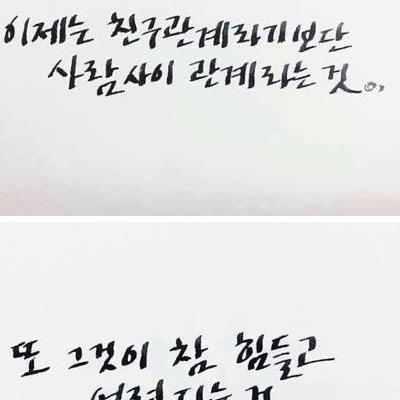 이제는 친구관계라기보단
사람사이 관계라는것.,
또 그것이 참 힘들고